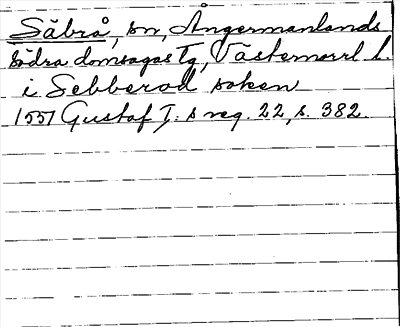 Säbrå, sn, Ångermanlands
södra domsagas tg, Västernorrl l.
i Sebberod soken
1557 Gustaf I:s reg. 22, s. 382.